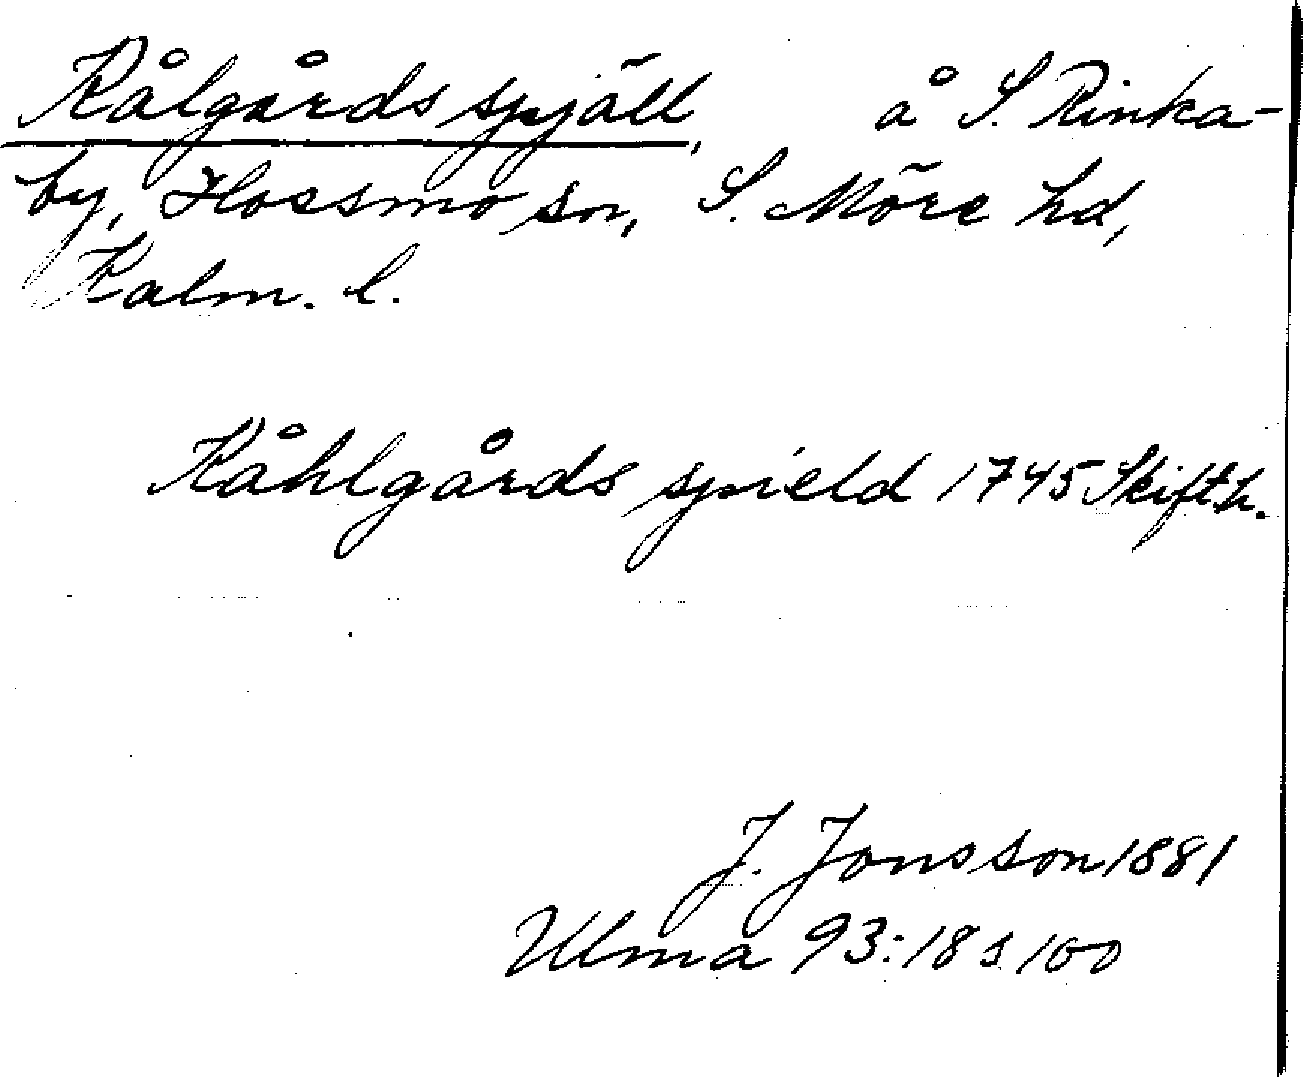 Kålgårdsspjäll, å S. Rinka-
by, Hossmo sn, S. Möre hd,
Kalm. l.
Kåhlgårds spield 1745 Skift.h.
J. Jonsson 1881
Ulma 93:18 s 100